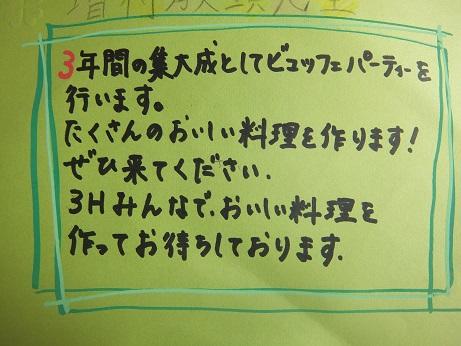 3年間の集大成としてビュッフェパーティーを
行います。
たくさんのおいしい料理を作ります!
ぜひ来てください.
3Hみんなで、おいしい料理を
作ってお待ちしております.